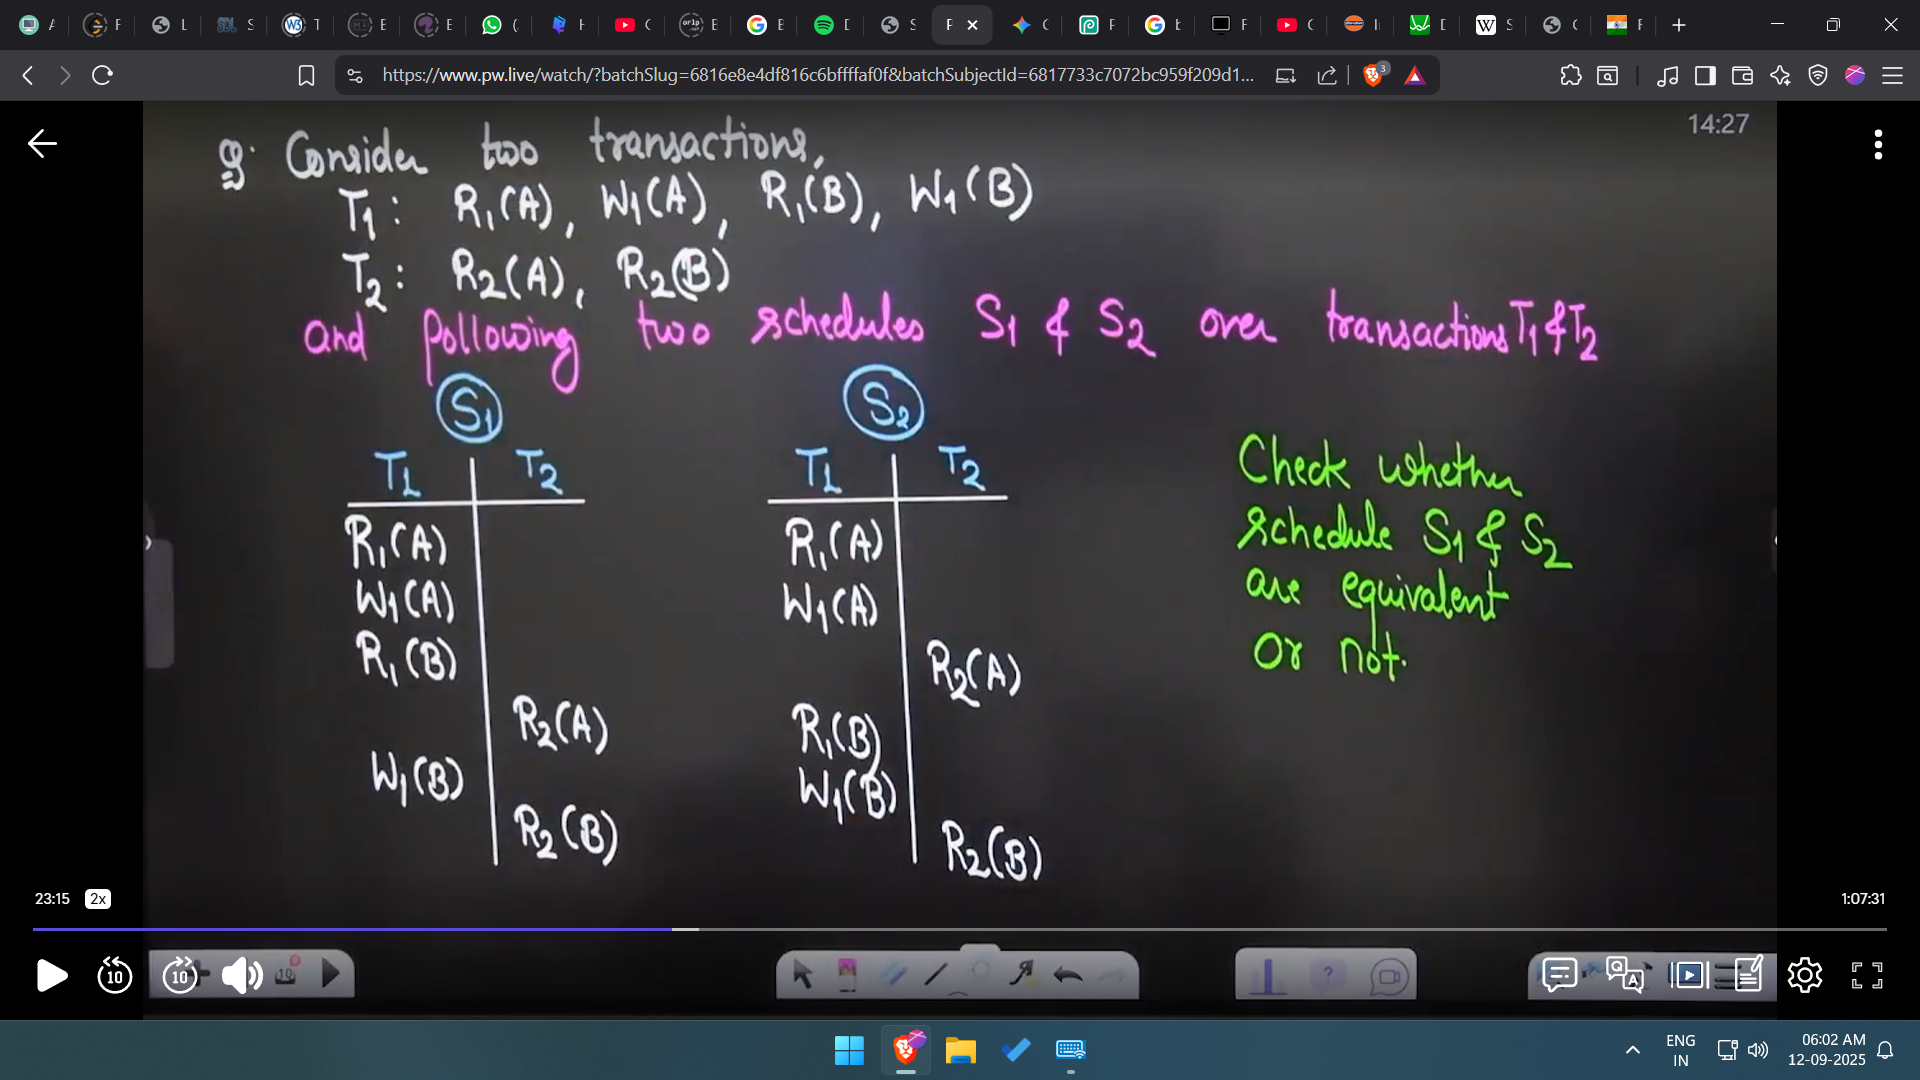 https://www.pw.live/watch/?batchSlug=6816e8e4df816c6bffffaf0f&batchSubjectId=6817733c7072bc959f209d1...
3
14:27
Q. Consider two transactions,
T1: R1(A), W1(A), R1(B), W1(B)
T2: R2(A), R2(B)
and following two schedules S1 & S2 over transactions T1 & T2
S1
T1 T2
R1(A)
W1(A)
R1(B)
R2(A)
W1(B)
R2(B)
S2
T1 T2
R1(A)
W1(A)
R2(A)
R1(B)
W1(B)
R2(B)
Check whether
schedule S1 & S2
are equivalent
or not.
23:15 2x
1:07:31
10 10
10
ENG
IN
06:02 AM
12-09-2025